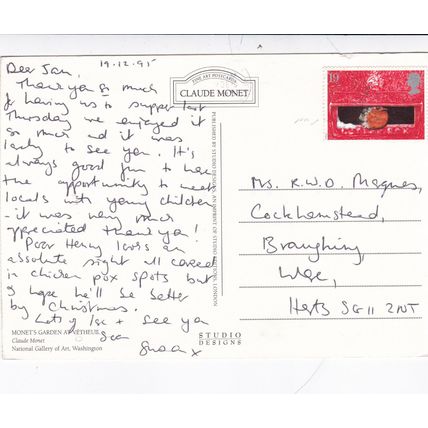 19.12.95
Dear Jan,
Thank you so much
for having us to supper last
Thursday we enjoyed it
so much and it was
lovely to see you. It's
always good fun to have
the opportunity to meet
locals with young children
- it was very much
appreciated thank you!
Poor Henry looks an
absolute sight all covered
in chicken pox spots but
I hope he'll be better
by Christmas.
Lots of love + see you
Soon
Susan x
MONET'S GARDEN AT VÉTHEUIL
Claude Monet
National Gallery of Art, Washington
FINE ART POSTCARDS
CLAUDE MONET
PUBLISHED BY STUDIO DESIGNS, AN IMPRINT OF STUDIO EDITIONS, LONDON
STUDIO
DESIGNS
19
Mrs. R.W.O. Magnus,
Cockhamstead,
Braughing,
Ware,
Herts SG11 2NT